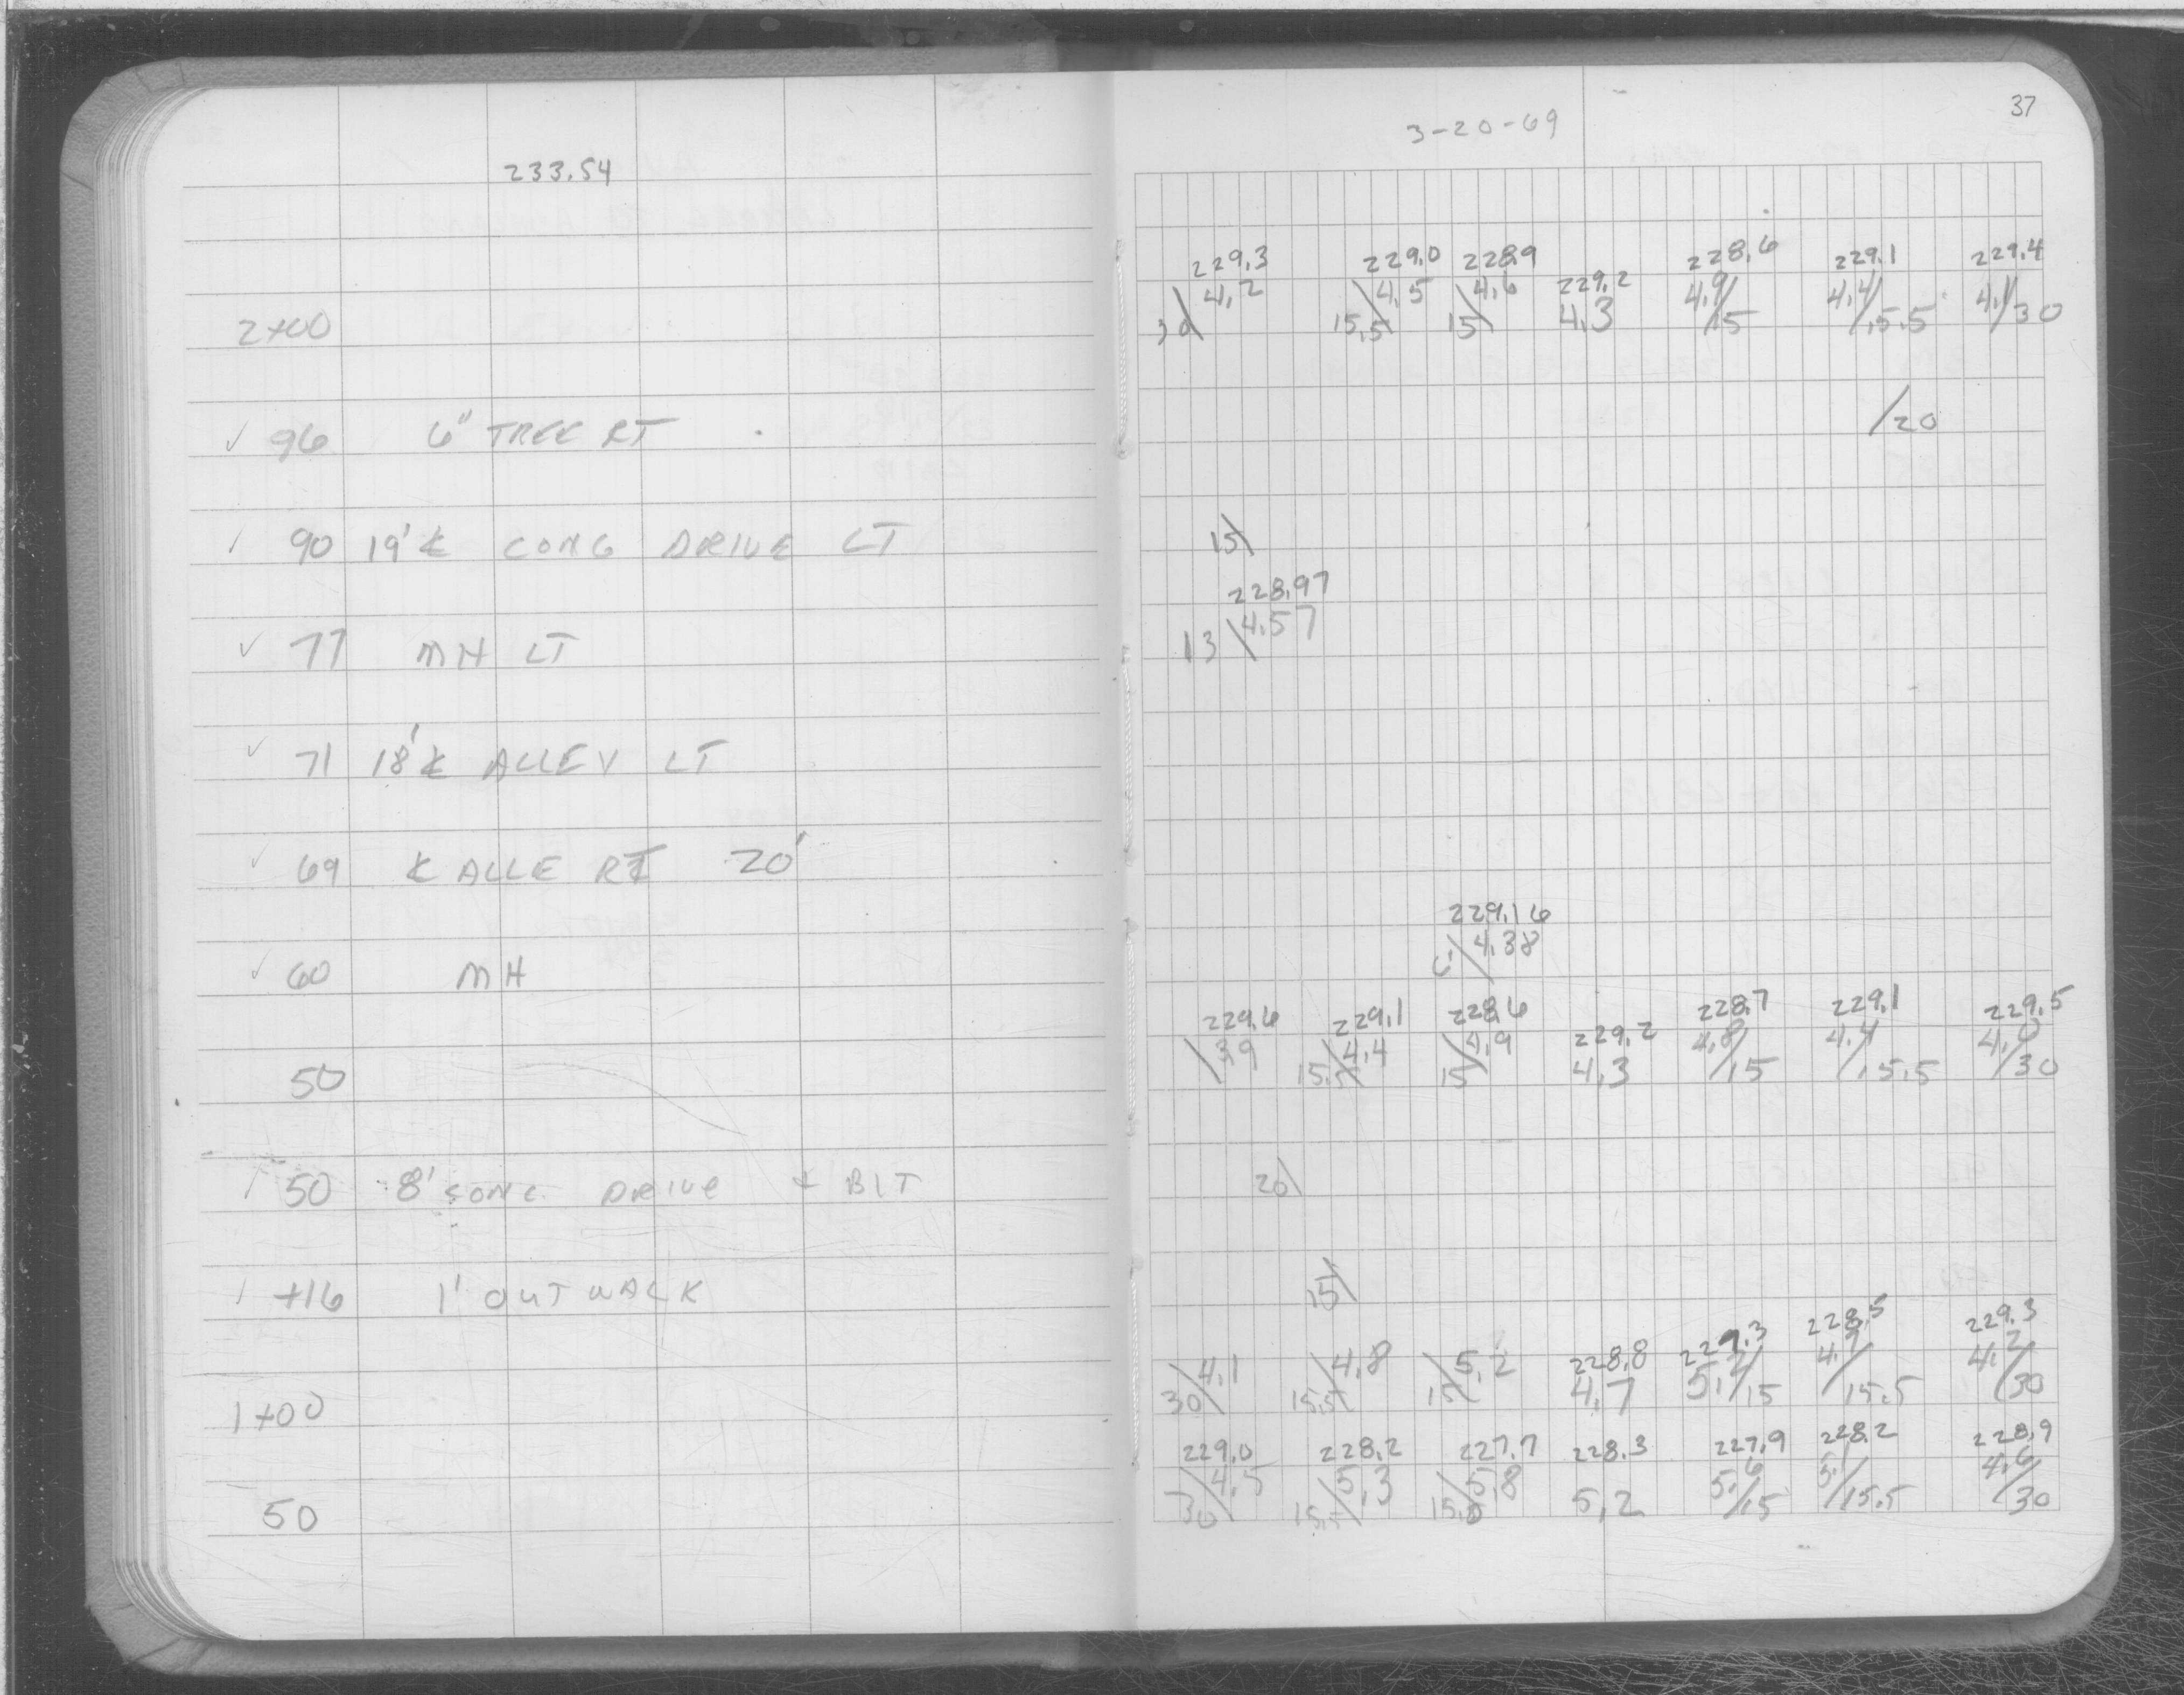 233.54
2+00
✓ 96 6" TREE RT
✓ 90 19' ℄ CONC DRIVE LT
✓ 77 MH LT
✓ 71 18' ℄ ALLEY LT
✓ 69 ℄ ALLE RT 20'
✓ 60 MH
50
✓ 50 8' CONC DRIVE ℄ BIT
✓ +16 1' OUT WALK
1+00
50
37
3-20-69
229.3 229.0 228.9 229.2 228.6 229.1 229.4
30\4.2 15.5\4.5 15\4.6 4.3 4.9/15 4.4/15.5 4.1/30
/20
15\
228.97
13\4.57
229.16
6\4.38
229.6 229.1 228.6 229.2 228.7 229.1 229.5
\3.9 15.5\4.4 15\4.9 4.3 4.8/15 4.4/15.5 4.0/30
20\
15\
228.8 228.5 229.3
30\4.1 15.5\4.8 15\5.2 4.7 15 15.5 4.2/30
229.0 228.2 227.7 228.3 227.9 228.2 228.9
30\4.5 15.5\5.3 15.0\5.8 5.2 5.6/15 /15.5 4.6/30